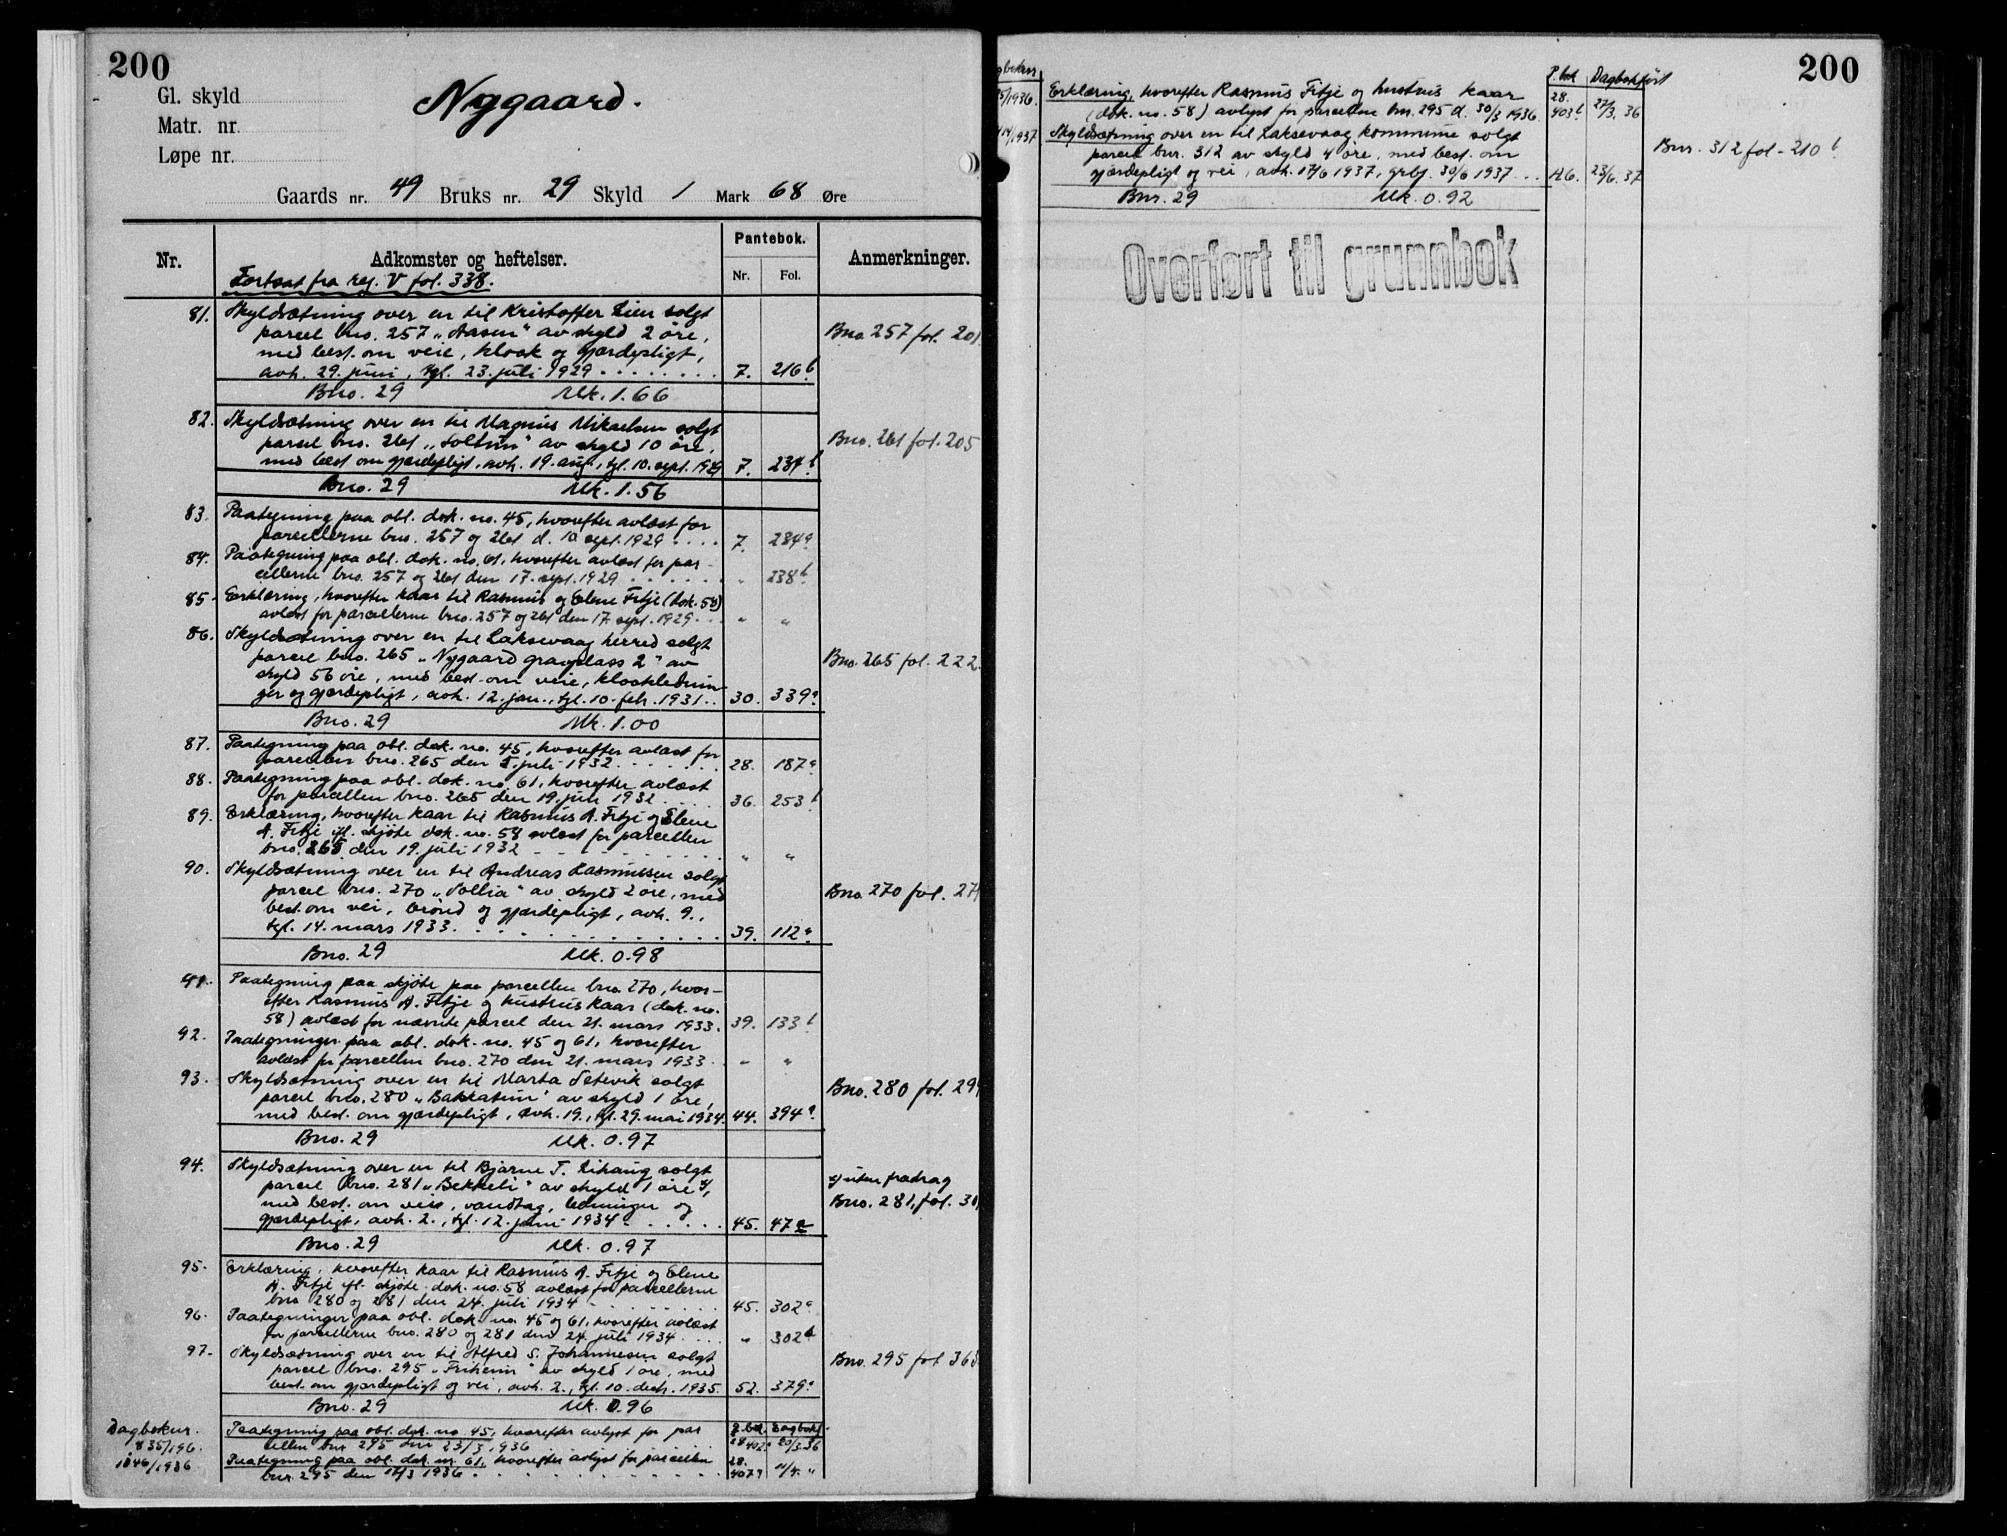 200
Gl. skyld
Matr. nr.
Løpe nr.
Nygaard.
Gaards nr. 49 Bruks nr. 29 Skyld 1 Mark 68 Øre
Nr.
Adkomster og heftelser.
Pantebok.
Nr. Fol.
Anmerkninger.
Fortsat fra reg. V fol. 338.
81. Skyldsætning over en til Kristoffer Lien solgt
parcel bno. 257 „Aasen" av skyld 2 øre,
med best. om veie, kloak og gjærdepligt,
avh. 29. juni, tgl. 23. juli 1929 7. 216 b
Bno 257 fol. 201
Bno. 29 Mk. 1.66
82. Skyldsætning over en til Magnus Mikaelsen solgt
parcel bno. 261 „Soltun" av skyld 10 øre,
med best om gjærdepligt, avh. 19. aug., tgl. 10. sept. 1929 7. 234 b
Bno. 261 fol. 205
Bno. 29 Mk. 1.56
83. Paategning paa obl. dok. no. 45, hvorefter avløst for
parcellerne bno. 257 og 261 d. 10 sept. 1929 7. 234 a
84. Paategning paa obl. dok. no. 61, hvorefter avløst for par-
cellerne bno. 257 og 261 den 17. sept. 1929 " 238 b
85 Erklæring, hvorefter kaar til Rasmus og Elene Fitje (dok. 58)
avløst for parcellerne bno. 257 og 261 den 17. sept. 1929 " "
86. Skyldsætning over en til Laksevaag herred solgt
parcel bno. 265 „Nygaard gravplass 2" av
skyld 56 øre, med best. om veie, kloaklednin-
ger og gjærdepligt, avh. 12. jan., tgl. 10. feb. 1931 30. 339 a
Bno. 265 fol. 222
Bno. 29 Mk. 1.00
87. Paategning paa obl. dok. no. 45, hvorefter avløst for
parcellen bno. 265 den 5. juli 1932 28. 187 a
88. Paategning paa obl. dok. no 61, hvorefter avløst
for parcellen bno. 265 den 19. juli 1932 36. 253 b
89. Erklæring, hvorefter kaar til Rasmus A. Fitje og Elene
A. Fitje ifl. skjøte dok. no. 58 avløst for parcellen
bno. 265 den 19. juli 1932 " "
90. Skyldsætning over en til Andreas Rasmussen solgt
parcel bno. 270 „Sollia" av skyld 2 øre, med
best. om vei, brønd og gjærdepligt, avh. 9.,
tgl. 14. mars 1933. 39. 112 a
Bno 270 fol. 27
Bno. 29 Mk. 0.98
91. Paategning paa skjøte paa parcellen bno. 270, hvor-
efter Rasmus A. Fitje og hustrus kaar (dok. no.
58) avløst for nævnte parcel den 21. mars 1933. 39. 133 b
92. Paategninger paa obl. dok. no. 45 og 61, hvorefter
avløst for parcellen bno. 270 den 21. mars 1933 " "
93. Skyldsætning over en til Marta Setevik solgt
parcel bno. 280 „Bakkatun" av skyld 1 øre,
med best. om gjærdepligt, avh. 19., tgl. 29. mai 1934. 44. 394 a
Bno. 280 fol. 29
Bno. 29 Mk. 0.97
94. Skyldsætning over en til Bjarne T. Lihaug solgt
parcel bno. 281 „Bekkeli" av skyld 1 øre x),
med best. om veie, vandtag, ledninger og
gjærdepligt, avh. 2., tgl. 12. juni 1934 45. 47 a
x) uten fradrag
Bno. 281, fol. 30
Bno. 29 Mk. 0.97
95. Erklæring, hvorefter kaar til Rasmus A. Fitje og Elene
A. Fitje ifl. skjøte dok. no. 58 avløst for parcellerne
bno 280 og 281 den 24. juli 1934 45. 302 a
96. Paategninger paa obl. dok. no. 45 og 61, hvorefter avløst
for parcellerne bno. 280 og 281 den 24. juli 1934 " 302 b
97. Skyldsætning over en til Alfred S. Johannesen solgt
parcel bno. 295 „Friheim" av skyld 1 øre, med
best. om gjærdepligt og vei, avh. 2., tgl. 10. decb. 1935. 52. 379 a
Bno. 295 fol 365
Bno. 29 Mk. 0.96
Dagboknr.
835/1936.
1046/1936
P.bok. Dagbokf.
Paategning paa obl. dok. no. 45, hvorefter avlyst for par
cellen bnr 295 den 23/3 1936 28 402 a 20/3. 36
Paategning paa obl. dok. nr. 61, hvorefter avlyst for parcellen
bnr. 295 den 1936 28. 407 a "
200
gboknr P. bok Dagbokført
/1936. Erklæring, hvorefter Rasmus Fitje og hustrus kaar
(dok. no. 58) avlyst for parcellen bnr. 295 d. 30/3 1936. 28. 403 b 27/3. 36
/1937 Skyldsætning over en til Laksevaag kommune solgt
parcel bnr. 312 av skyld 4 øre, med best. om
gjærdepligt og vei, avh. 17/6 1937, grbf. 30/6 1937 A6. 23/6. 37
Bnr. 312 fol. 210 b.
Bnr. 29 Mk. 0.92
Overført til grunnbok